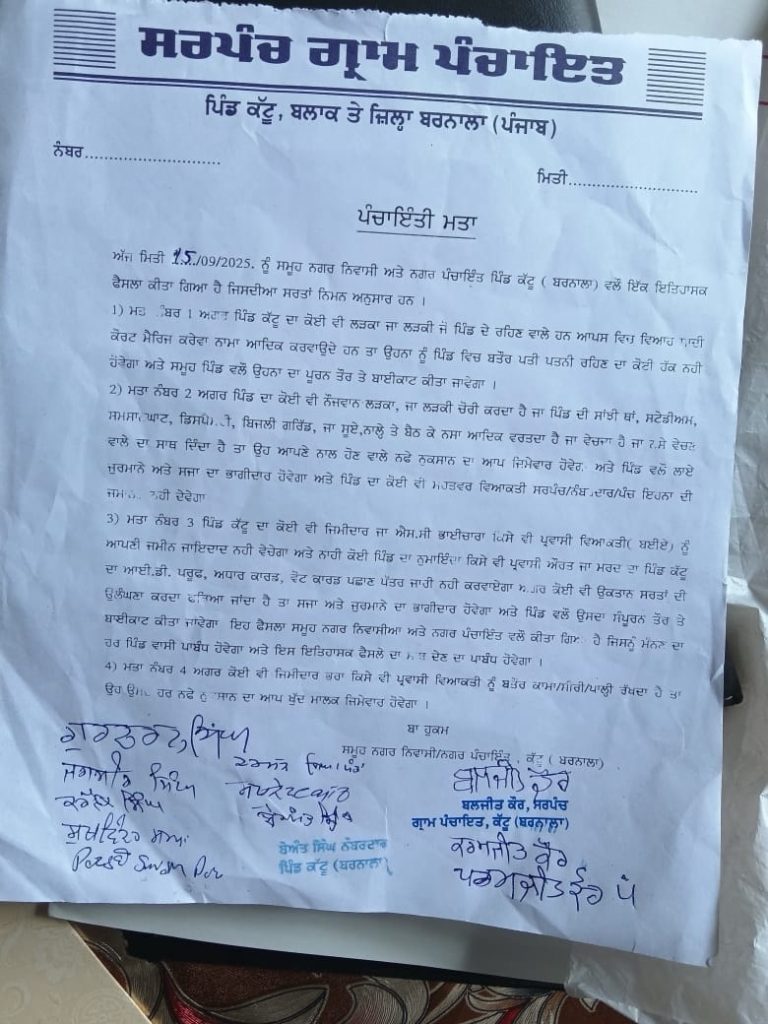 ਸਰਪੰਚ ਗ੍ਰਾਮ ਪੰਚਾਇਤ
ਪਿੰਡ ਕੱਟੂ, ਬਲਾਕ ਤੇ ਜ਼ਿਲ੍ਹਾ ਬਰਨਾਲਾ (ਪੰਜਾਬ)
ਨੰਬਰ............................
ਮਿਤੀ............................
ਪੰਚਾਇੰਤੀ ਮਤਾ
ਅੱਜ ਮਿਤੀ 15/09/2025. ਨੂੰ ਸਮੂਹ ਨਗਰ ਨਿਵਾਸੀ ਅਤੇ ਨਗਰ ਪੰਚਾਇੰਤ ਪਿੰਡ ਕੱਟੂ ( ਬਰਨਾਲਾ) ਵਲੋ ਇੱਕ ਇਤਿਹਾਸਕ
ਫੈਸਲਾ ਕੀਤਾ ਗਿਆ ਹੈ ਜਿਸਦੀਆ ਸਰਤਾਂ ਨਿਮਨ ਅਨੁਸਾਰ ਹਨ ।
1) ਪਿੰਡ ਕੱਟੂ ਦਾ ਕੋਈ ਵੀ ਲੜਕਾ ਜਾ ਲੜਕੀ ਜੋ ਪਿੰਡ ਦੇ ਰਹਿਣ ਵਾਲੇ ਹਨ ਆਪਸ ਵਿਚ ਵਿਆਹ
ਕੋਰਟ ਮੈਰਿਜ ਕਰੇਵਾ ਨਾਮਾ ਆਦਿਕ ਕਰਵਾਉਦੇ ਹਨ ਤਾ ਉਹਨਾ ਨੂੰ ਪਿੰਡ ਵਿਚ ਬਤੌਰ ਪਤੀ ਪਤਨੀ ਰਹਿਣ ਦਾ ਕੋਈ ਹੱਕ ਨਹੀ
ਹੋਵੇਗਾ ਅਤੇ ਸਮੂਹ ਪਿੰਡ ਵਲੋ ਉਹਨਾ ਦਾ ਪੂਰਨ ਤੌਰ ਤੇ ਬਾਈਕਾਟ ਕੀਤਾ ਜਾਵੇਗਾ ।
2) ਮਤਾ ਨੰਬਰ 2 ਅਗਰ ਪਿੰਡ ਦਾ ਕੋਈ ਵੀ ਨੌਜਵਾਨ ਲੜਕਾ, ਜਾ ਲੜਕੀ ਚੋਰੀ ਕਰਦਾ ਹੈ ਜਾ ਪਿੰਡ ਦੀ ਸਾਂਝੀ ਥਾਂ, ਸਟੇਡੀਅਮ,
ਬਿਜਲੀ ਗਰਿੱਡ, ਜਾ ਸੂਏ,ਨਾਲ੍ਹੇ ਤੇ ਬੈਠ ਕੇ ਨਸਾ ਆਦਿਕ ਵਰਤਦਾ ਹੈ ਜਾ ਵੇਚਦਾ ਹੈ ਜਾ ਵੇਚਣ
ਵਾਲੇ ਦਾ ਸਾਥ ਦਿੰਦਾ ਹੈ ਤਾ ਉਹ ਆਪਣੇ ਨਾਲ ਹੋਣ ਵਾਲੇ ਨਫੇ ਨੁਕਸਾਨ ਦਾ ਆਪ ਜਿਮੇਵਾਰ ਅਤੇ ਪਿੰਡ ਵਲੋ ਲਾਏ
ਜੁਰਮਾਨੇ ਅਤੇ ਸਜਾ ਦਾ ਭਾਗੀਦਾਰ ਹੋਵੇਗਾ ਅਤੇ ਪਿੰਡ ਦਾ ਕੋਈ ਵੀ ਮਹਤਵਰ ਵਿਆਕਤੀ ਇਹਨਾ ਦੀ
ਦੇਵੇਹਾ
3) ਮਤਾ ਨੰਬਰ 3 ਪਿੰਡ ਕੱਟੂ ਦਾ ਕੋਈ ਵੀ ਜਿਮੀਦਾਰ ਜਾ ਐਸ.ਸੀ ਭਾਈਚਾਰਾ ਕਿਸੇ ਵੀ ਪ੍ਰਵਾਸੀ ਵਿਆਕਤੀ( ਬਈਏ) ਨੂੰ
ਆਪਣੀ ਜਮੀਨ ਜਾਇਦਾਦ ਨਹੀ ਵੇਚੇਗਾ ਅਤੇ ਨਾਹੀ ਕੋਈ ਪਿੰਡ ਦਾ ਨੁਮਾਇੰਦਾ ਕਿਸੇ ਵੀ ਪ੍ਰਵਾਸੀ ਔਰਤ ਜਾ ਮਰਦ ਦਾ ਪਿੰਡ ਕੱਟੂ
ਦਾ ਆਈ.ਡੀ. ਪਰੂਫ, ਅਧਾਰ ਕਾਰਡ, ਵੋਟ ਕਾਰਡ ਪਛਾਣ ਪੱਤਰ ਜਾਰੀ ਨਹੀ ਕਰਵਾਏਗਾ ਕੋਈ ਵੀ ਉਕਤਾਨ ਸਰਤਾਂ ਦੀ
ਉਲੰਘਣਾ ਕਰਦਾ ਜਾਂਦਾ ਹੈ ਤਾ ਸਜਾ ਅਤੇ ਜੁਰਮਾਨੇ ਦਾ ਭਾਗੀਦਾਰ ਹੋਵੇਗਾ ਅਤੇ ਪਿੰਡ ਵਲੋ ਉਸਦਾ ਸੰਪੂਰਨ ਤੌਰ ਤੇ
ਬਾਈਕਾਟ ਕੀਤਾ ਜਾਵੇਗਾ ਇਹ ਫੈਸਲਾ ਸਮੂਹ ਨਗਰ ਨਿਵਾਸੀਆ ਅਤੇ ਨਗਰ ਪੰਚਾਇੰਤ ਵਲੋ ਕੀਤਾ ਹੈ ਜਿਸਨੂੰ ਮੰਨਣ ਦਾ
ਹਰ ਪਿੰਡ ਵਾਸੀ ਪਾਬੰਧ ਹੋਵੇਗਾ ਅਤੇ ਇਸ ਇਤਿਹਾਸਕ ਫੈਸਲੇ ਦਾ ਦੇਣ ਦਾ ਪਾਬੰਧ ਹੋਵੇਗਾ ।
4) ਮਤਾ ਨੰਬਰ 4 ਅਗਰ ਕੋਈ ਵੀ ਜਿਮੀਦਾਰ ਭਰਾ ਕਿਸੇ ਵੀ ਪ੍ਰਵਾਸੀ ਵਿਆਕਤੀ ਨੂੰ ਬਤੌਰ ਕਾਮਾ/ਸੀਰੀ/ਪਾਲ੍ਹੀ ਰੱਖਦਾ ਹੈ ਤਾ
ਉਹ ਹਰ ਨਫੇ ਦਾ ਆਪ ਖੁੱਦ ਮਾਲਕ ਜਿਮੇਵਾਰ ਹੋਵੇਗਾ ।
ਬਾ ਹੁਕਮ
ਸਮੂਹ ਨਗਰ ਨਿਵਾਸੀ/ਨਗਰ ਪੰਚਾਇੰਤ , ਕੱਟੂ ( ਬਰਨਾਲਾ)
ਜਗਜੀਤ ਸਿੰਘ
ਬੇਅੰਤ ਸਿੰਘ
ਬਲਜੀਤ ਕੌਰ
ਬਲਜੀਤ ਕੌਰ, ਸਰਪੰਚ
ਗ੍ਰਾਮ ਪੰਚਾਇਤ, ਕੱਟੂ (ਬਰਨਾਲਾ)
ਬੇਅੰਤ ਸਿੰਘ ਨੰਬਰਦਾਰ
ਪਿੰਡ ਕੱਟੂ (ਬਰਨਾਲਾ)
ਕਰਮਜੀਤ ਕੌਰ